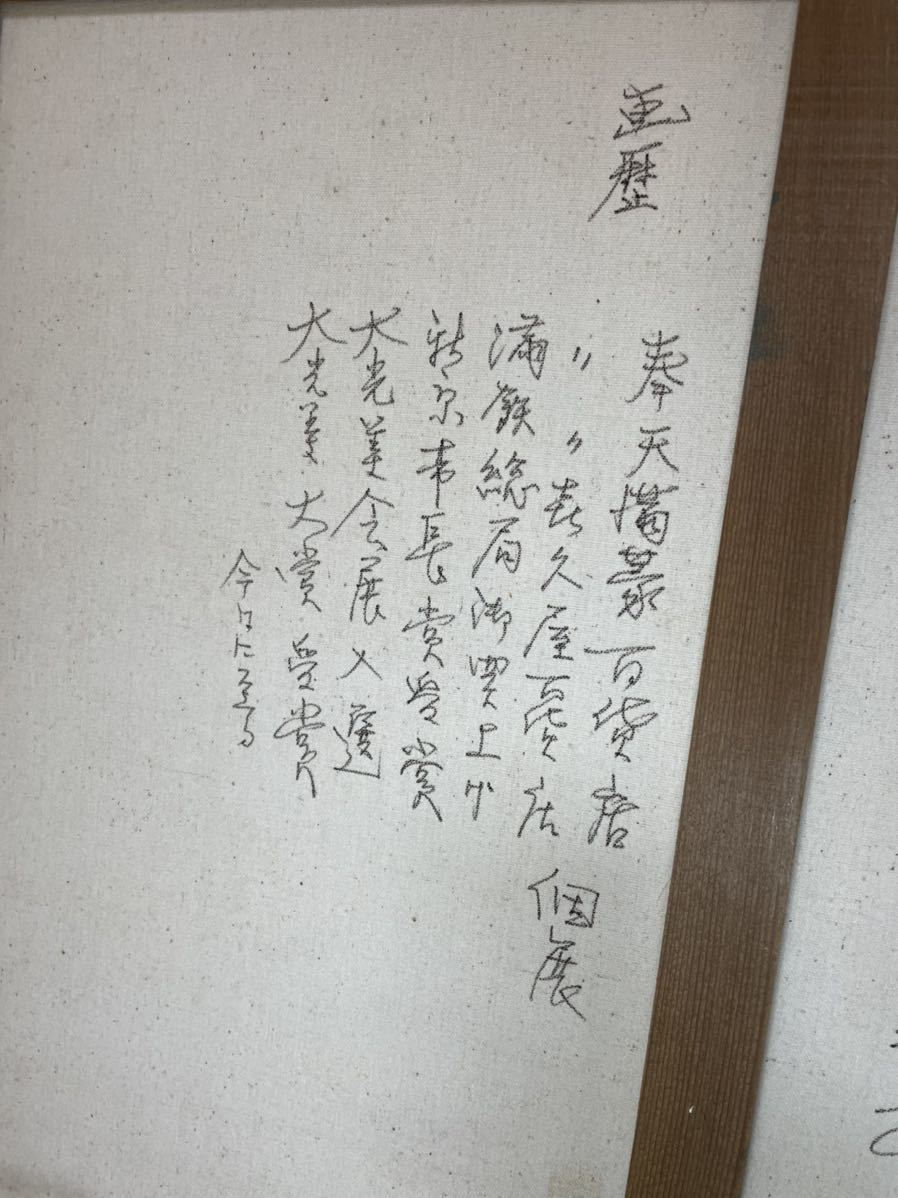 画歴
奉天満蒙百貨店
〃 〃喜久屋百貨店 個展
満鉄総局御買上げ
新京市長賞受賞
大光美会展入選
大光美大賞受賞
今日に至る